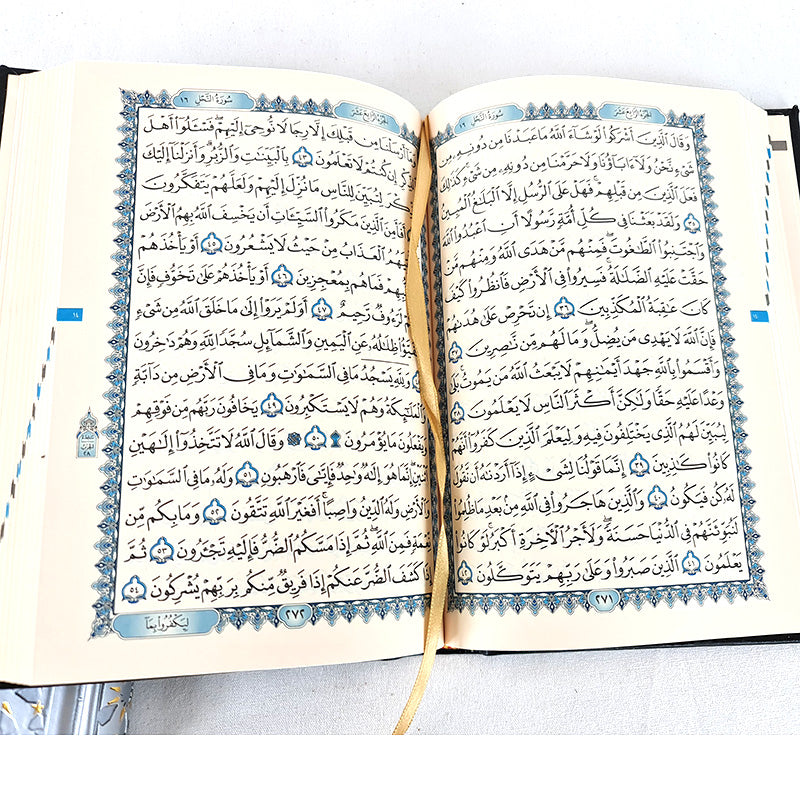 الجُزْءُ الرَّابِعَ عَشَرَ
سُورَةُ النَّحْلِ ١٦
وَقَالَ ٱلَّذِينَ أَشْرَكُوا۟ لَوْ شَآءَ ٱللَّهُ مَا عَبَدْنَا مِن دُونِهِۦ مِن
شَىْءٍ نَّحْنُ وَلَآ ءَابَآؤُنَا وَلَا حَرَّمْنَا مِن دُونِهِۦ مِن شَىْءٍ كَذَٰلِكَ
فَعَلَ ٱلَّذِينَ مِن قَبْلِهِمْ فَهَلْ عَلَى ٱلرُّسُلِ إِلَّا ٱلْبَلَٰغُ ٱلْمُبِينُ
٣٥ وَلَقَدْ بَعَثْنَا فِى كُلِّ أُمَّةٍ رَّسُولًا أَنِ ٱعْبُدُوا۟ ٱللَّهَ
وَٱجْتَنِبُوا۟ ٱلطَّٰغُوتَ فَمِنْهُم مَّنْ هَدَى ٱللَّهُ وَمِنْهُم مَّنْ
حَقَّتْ عَلَيْهِ ٱلضَّلَٰلَةُ فَسِيرُوا۟ فِى ٱلْأَرْضِ فَٱنظُرُوا۟ كَيْفَ
كَانَ عَٰقِبَةُ ٱلْمُكَذِّبِينَ ٣٦ إِن تَحْرِصْ عَلَىٰ هُدَىٰهُمْ
فَإِنَّ ٱللَّهَ لَا يَهْدِى مَن يُضِلُّ وَمَا لَهُم مِّن نَّٰصِرِينَ ٣٧
وَأَقْسَمُوا۟ بِٱللَّهِ جَهْدَ أَيْمَٰنِهِمْ لَا يَبْعَثُ ٱللَّهُ مَن يَمُوتُ بَلَىٰ
وَعْدًا عَلَيْهِ حَقًّا وَلَٰكِنَّ أَكْثَرَ ٱلنَّاسِ لَا يَعْلَمُونَ ٣٨
لِيُبَيِّنَ لَهُمُ ٱلَّذِى يَخْتَلِفُونَ فِيهِ وَلِيَعْلَمَ ٱلَّذِينَ كَفَرُوٓا۟ أَنَّهُمْ
كَانُوا۟ كَٰذِبِينَ ٣٩ إِنَّمَا قَوْلُنَا لِشَىْءٍ إِذَآ أَرَدْنَٰهُ أَن نَّقُولَ
لَهُۥ كُن فَيَكُونُ ٤٠ وَٱلَّذِينَ هَاجَرُوا۟ فِى ٱللَّهِ مِنۢ بَعْدِ مَا ظُلِمُوا۟
لَنُبَوِّئَنَّهُمْ فِى ٱلدُّنْيَا حَسَنَةً وَلَأَجْرُ ٱلْءَاخِرَةِ أَكْبَرُ لَوْ كَانُوا۟
يَعْلَمُونَ ٤١ ٱلَّذِينَ صَبَرُوا۟ وَعَلَىٰ رَبِّهِمْ يَتَوَكَّلُونَ ٤٢
٢٧١
الجُزْءُ الرَّابِعَ عَشَرَ
سُورَةُ النَّحْلِ ١٦
أَرْسَلْنَا مِن قَبْلِكَ إِلَّا رِجَالًا نُّوحِىٓ إِلَيْهِمْ فَسْـَٔلُوٓا۟ أَهْلَ
إِن كُنتُمْ لَا تَعْلَمُونَ ٤٣ بِٱلْبَيِّنَٰتِ وَٱلزُّبُرِ وَأَنزَلْنَآ إِلَيْكَ
لِتُبَيِّنَ لِلنَّاسِ مَا نُزِّلَ إِلَيْهِمْ وَلَعَلَّهُمْ يَتَفَكَّرُونَ
ٱلَّذِينَ مَكَرُوا۟ ٱلسَّيِّـَٔاتِ أَن يَخْسِفَ ٱللَّهُ بِهِمُ ٱلْأَرْضَ
ٱلْعَذَابُ مِنْ حَيْثُ لَا يَشْعُرُونَ ٤٥ أَوْ يَأْخُذَهُمْ
فَمَا هُم بِمُعْجِزِينَ ٤٦ أَوْ يَأْخُذَهُمْ عَلَىٰ تَخَوُّفٍ فَإِنَّ
لَرَءُوفٌ رَّحِيمٌ ٤٧ أَوَلَمْ يَرَوْا۟ إِلَىٰ مَا خَلَقَ ٱللَّهُ مِن شَىْءٍ
ظِلَٰلُهُۥ عَنِ ٱلْيَمِينِ وَٱلشَّمَآئِلِ سُجَّدًا لِّلَّهِ وَهُمْ دَٰخِرُونَ
وَلِلَّهِ يَسْجُدُ مَا فِى ٱلسَّمَٰوَٰتِ وَمَا فِى ٱلْأَرْضِ مِن دَآبَّةٍ
وَٱلْمَلَٰٓئِكَةُ وَهُمْ لَا يَسْتَكْبِرُونَ ٤٩ يَخَافُونَ رَبَّهُم مِّن فَوْقِهِمْ
وَيَفْعَلُونَ مَا يُؤْمَرُونَ ۩ ٥٠ ۞ وَقَالَ ٱللَّهُ لَا تَتَّخِذُوٓا۟ إِلَٰهَيْنِ
إِنَّمَا هُوَ إِلَٰهٌ وَٰحِدٌ فَإِيَّٰىَ فَٱرْهَبُونِ ٥١ وَلَهُۥ مَا فِى ٱلسَّمَٰوَٰتِ
وَٱلْأَرْضِ وَلَهُ ٱلدِّينُ وَاصِبًا أَفَغَيْرَ ٱللَّهِ تَتَّقُونَ ٥٢ وَمَا بِكُم مِّن
نِّعْمَةٍ فَمِنَ ٱللَّهِ ثُمَّ إِذَا مَسَّكُمُ ٱلضُّرُّ فَإِلَيْهِ تَجْـَٔرُونَ ٥٣ ثُمَّ
إِذَا كَشَفَ ٱلضُّرَّ عَنكُمْ إِذَا فَرِيقٌ مِّنكُم بِرَبِّهِمْ يُشْرِكُونَ ٥٤
٢٧٢
لِيَكْفُرُوا۟ بِمَآ
١٤